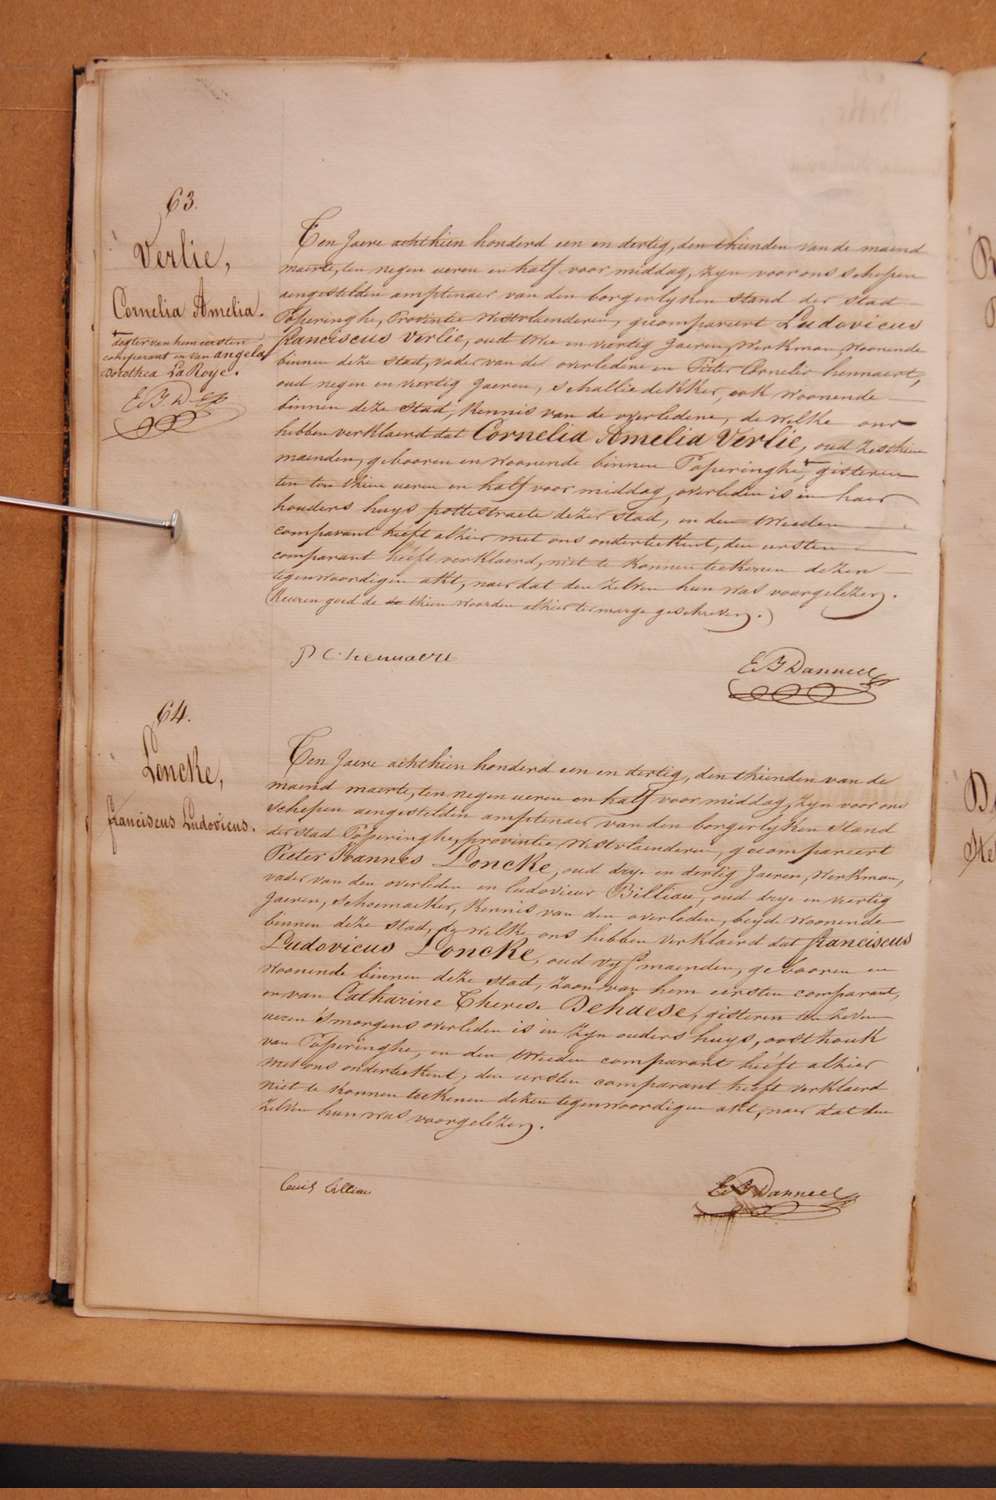 63.
Verlie,
Cornelia Amelia.
dogter van hem eersten
comparant en van Angela
Dorothea LaRoye.
E. B. D.
Ten Jaere achthien honderd een en dertig, den thienden van de maend
maerte, ten negen ueren en half voor middag, zyn voor ons schepen
aengestelden amptenaer van den borgerlyken stand der stad
Poperinghe, Provintie Westvlaenderen, gecompareert Ludovicus
franciscus Verlie, oud twee en veertig Jaeren, Werkman, Woonende
binnen deze stad, Vader van de overledene en Pieter Cornelis hennaert,
oud negen en veertig Jaeren, schalliedekker, ook woonende
binnen deze stad, kennis van de overledene, de welke ons
hebben verklaerd dat Cornelia Amelia Verlie, oud zesthien
maenden, gebooren en woonende binnen Poperinghe, gisteren
ten thien ueren en half voor middag, overleden is in haer
houders huys pottestraete dezer stad, en den tweeden
comparant heeft alhier met ons onderteekent, den eersten
comparant heeft verklaerd, niet te konnen teekenen dezen
tegenwoordigen akt, naer dat den zelven hun was voorgelezen.
(keuren goed de thien woorden alhier ter marge geschreven.)
P C hennaert
E B Danneel
64.
Loncke,
franciscus Ludovicus.
Ten Jaere achthien honderd een en dertig, den thienden van de
maend maerte, ten negen ueren en half voor middag, zyn voor ons
schepen aengestelden amptenaer van den borgerlyken stand
der stad Poperinghe, provintie Westvlaenderen, gecompareert
Pieter Joannes Loncke, oud drye en dertig Jaeren, Werkman,
vader van den overleden en Ludovicus Billiau, oud drye en veertig
Jaeren, schoemaeker, kennis van den overleden, beyde woonende
binnen deze stad, de welke ons hebben verklaerd dat franciscus
Ludovicus Loncke, oud vyf maenden, gebooren en
woonende binnen deze stad, zoon van hem eersten comparant,
en van Catharine Therese Dehaese, gisteren ten zeven
ueren 's morgens overleden is in zyn ouders huys, oosthouk
van Poperinghe, en den tweeden comparant heeft alhier
met ons onderteekent, den eersten comparant heeft verklaerd
niet te konnen teekenen dezen tegenwoordigen akt, naer dat den
zelven hun was voorgelezen.
Louis Billiau
E B Danneel